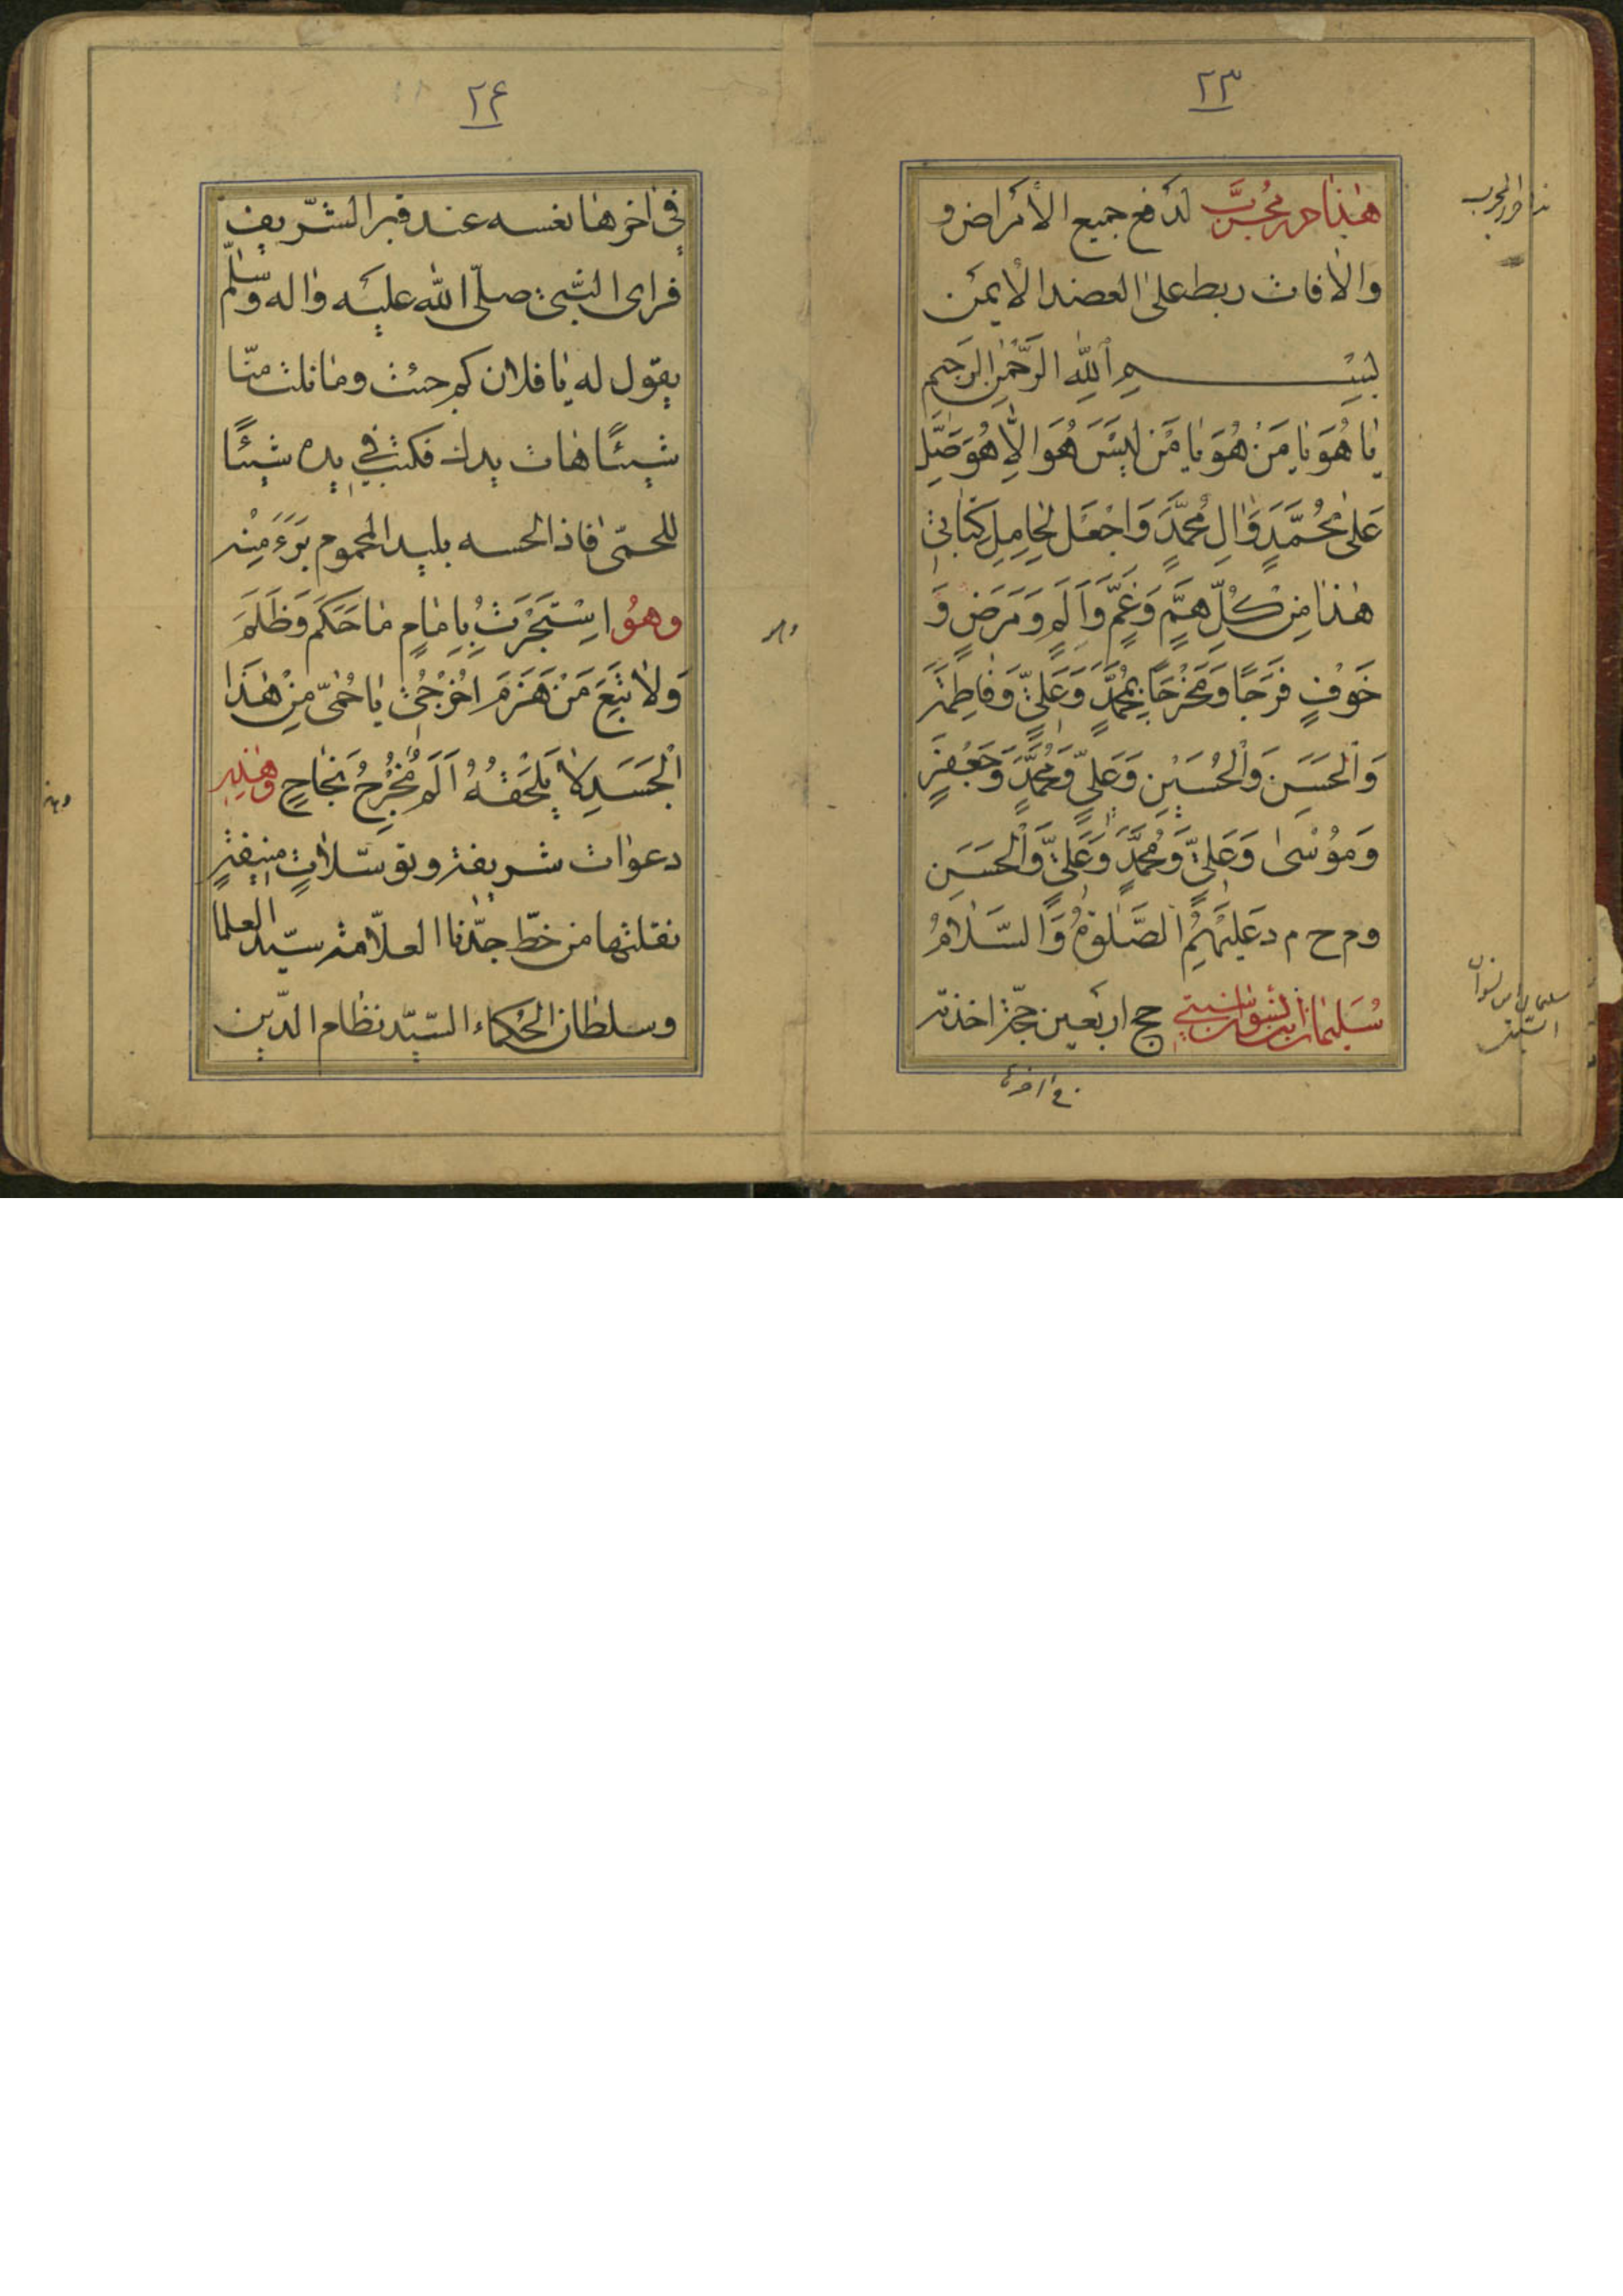 ٢٣
هٰذا حرز مُجرَّب لدَفع جميع الأمراض و
وَالأفات ربط على العضد الأيمَن
بِسْمِ اللّٰهِ الرَّحْمٰنِ الرَّحِيمِ
يٰا هُوَ يٰا مَنْ هُوَ يٰا مَنْ لَيْسَ هُوَ اِلّٰا هُوَ صَلِّ
عَلىٰ مُحَمَّدٍ وَاٰلِ مُحَمَّدٍ وَاجْعَل لِحٰامِلِ كِتٰابِي
هٰذٰا مِنْ كُلِّ هَمٍّ وَغَمٍّ وَاَلَمٍ وَمَرَضٍ وَ
خَوْفٍ فَرَجًا وَمَخْرَجًا بِمُحَمَّدٍ وَعَلِيٍّ وَفٰاطِمَةَ
وَالْحَسَنِ وَالْحُسَيْنِ وَعَلِيٍّ وَمُحَمَّدٍ وَجَعْفَرٍ
وَمُوْسىٰ وَعَلِيٍّ وَمُحَمَّدٍ وَعَلِيٍّ وَالْحَسَنِ
وم ح م د عَلَيْهِمُ الصَّلٰوةُ وَالسَّلٰامُ
سُلَيمٰان ابن حج اربَعين حجّة اخذته
في اخرها
هذا حرز المجرب
٢٤
في اٰخرهٰا نعسه عند قبر الشّريف
فراى النّبي صلّى اللّٰه عليْه واٰله وسلّم
يقول له يٰا فلان كم جئت ومٰا نلت منّا
شيئًا هٰات يدك فكتب في يده شيئًا
للحمّى فٰاذا لحسه بليد المحموم بَرَءَ مِنْه
وهُو اسْتَجَرْتُ بِاِمٰامٍ مٰا حَكَمَ وَظَلَمَ
وَلاٰ تَبِعَ مَنْ هَزَمَ اُخْرُجْي يٰا حُمّى مِنْ هٰذَا
الْجَسَدِ لاٰ يَلْحَقُهُ اَلَم مُخْرَجُ نَجٰاحٍ وهٰذِهِ
دعوات شريفة وتوسّلاٰتٍ منيفةٍ
نقلتها من خطّ جدّنا العلاّمة سيّد العلما
وسلطان الحُكماء السّيّد نظام الدّين